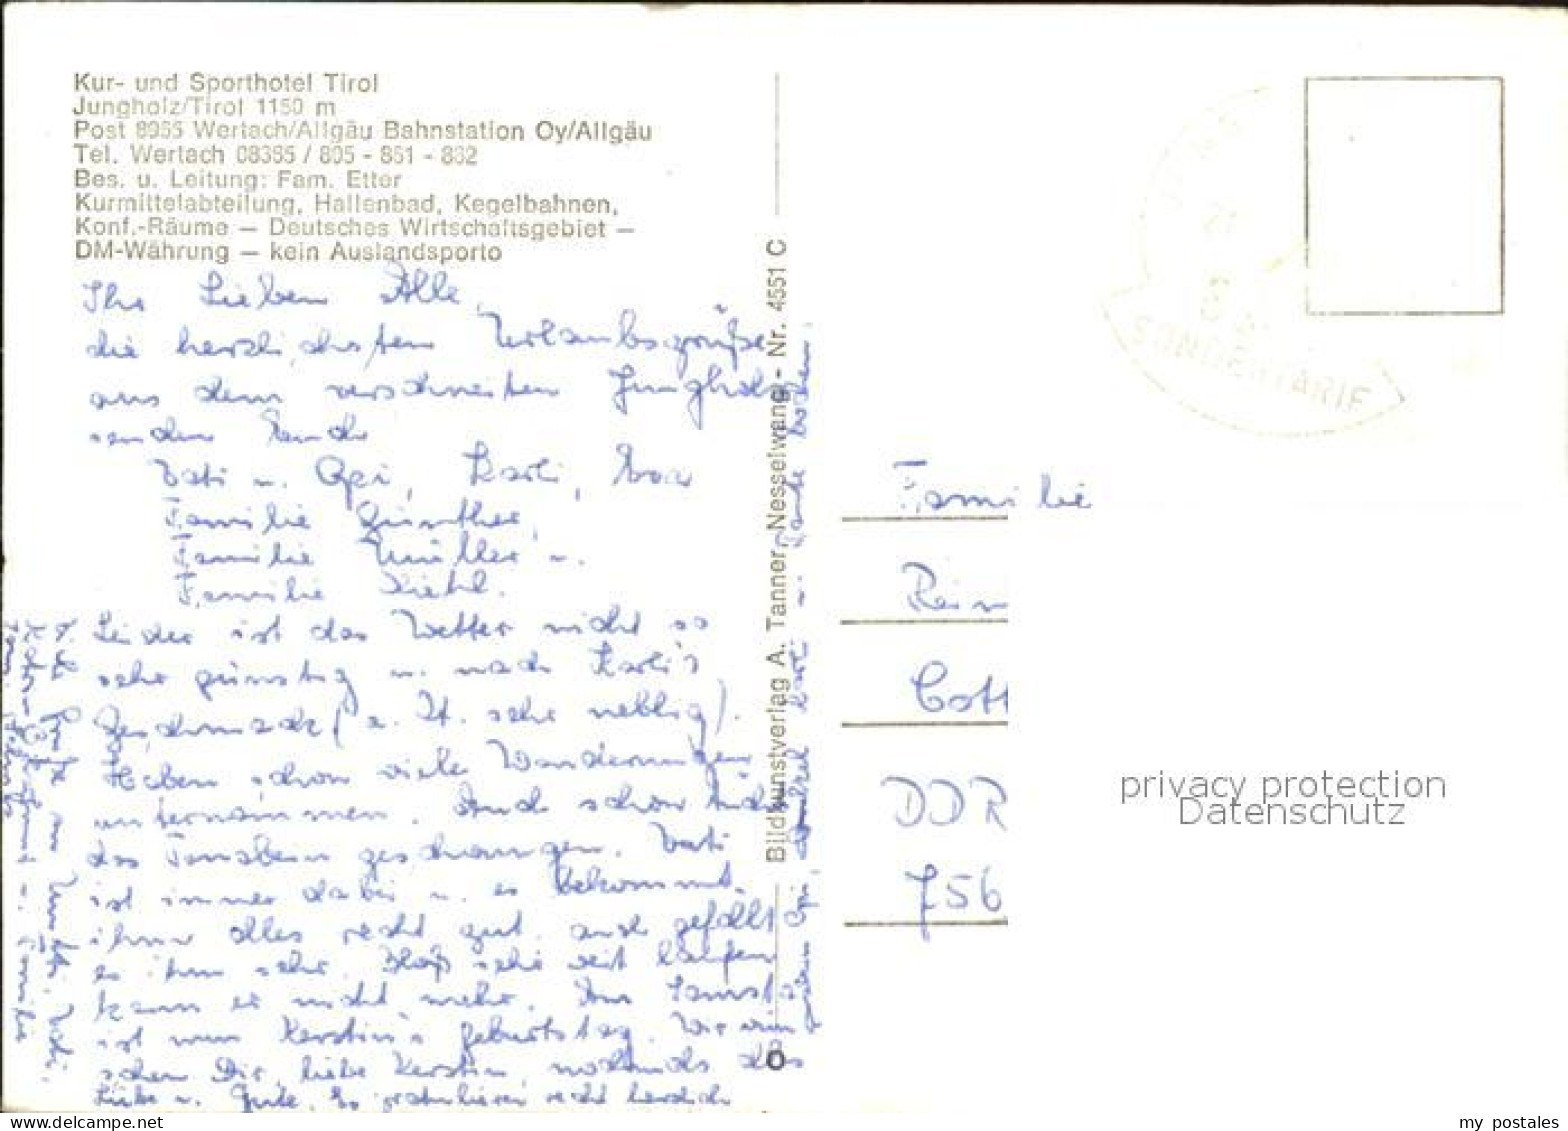 Kur- und Sporthotel Tirol
Jungholz/Tirol 1150 m
Post 8965 Wertach/Allgäu Bahnstation Oy/Allgäu
Tel. Wertach 08365 / 805 - 861 - 862
Bes. u. Leitung: Fam. Etter
Kurmittelabteilung, Hallenbad, Kegelbahnen,
Konf.-Räume — Deutsches Wirtschaftsgebiet —
DM-Währung — kein Auslandsporto
Ihr Lieben Alle,
die herzlichsten Urlaubsgrüße
aus dem verschneiten Jungholz
senden Euch
Vati u. Opi, Karli, Eva
Familie Günther,
Familie Müller u.
Familie
Leider ist das Wetter nicht so
sehr günstig u. nach Karli's
Geschmack (z. Zt. sehr neblig).
Haben schon viele Wanderungen
unternommen. Auch schon
das Tanzbein geschwungen. Vati
ist immer dabei u. es bekommt
ihm alles recht gut, auch gefällt
es ihm sehr. Bloß sehr weit laufen
kann er nicht mehr. Am
ist nun Kerstin's Geburtstag. Wir wün
schen Dir, liebe Kerstin, nochmals das
Liebe u. Gute. Es gratulieren recht herzlich
Opi, Onkel Karli u. Tante
Bildkunstverlag A. Tanner, Nesselwang - Nr. 4551 C
SONDERTARIF
Familie
Rein
Cott
DDR
756
privacy protection
Datenschutz
my postales